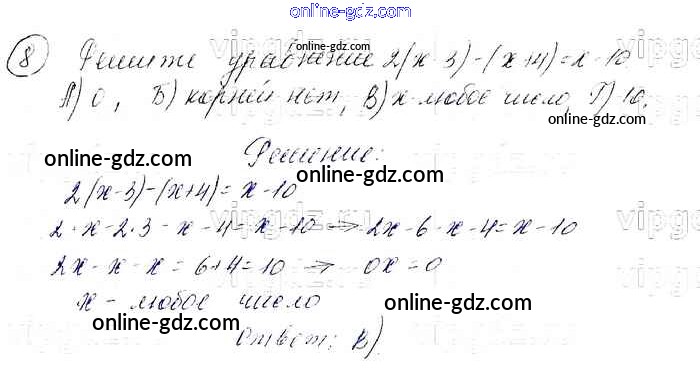 online-gdz.com
8 Решите уравнение 2(x-3)-(x+4)=x-10
online-gdz.com
А) 0, Б) корней нет, В) x-любое число, Г) 10.
online-gdz.com
Решение:
online-gdz.com
online-gdz.com
2(x-3)-(x+4)=x-10
2·x-2·3-x-4=x-10 ⇒ 2x-6-x-4=x-10
online-gdz.com
2x-x-x=6+4=10 ⇒ 0x=0
online-gdz.com
x-любое число
online-gdz.com
online-gdz.com
Ответ: В)
online-gdz.com